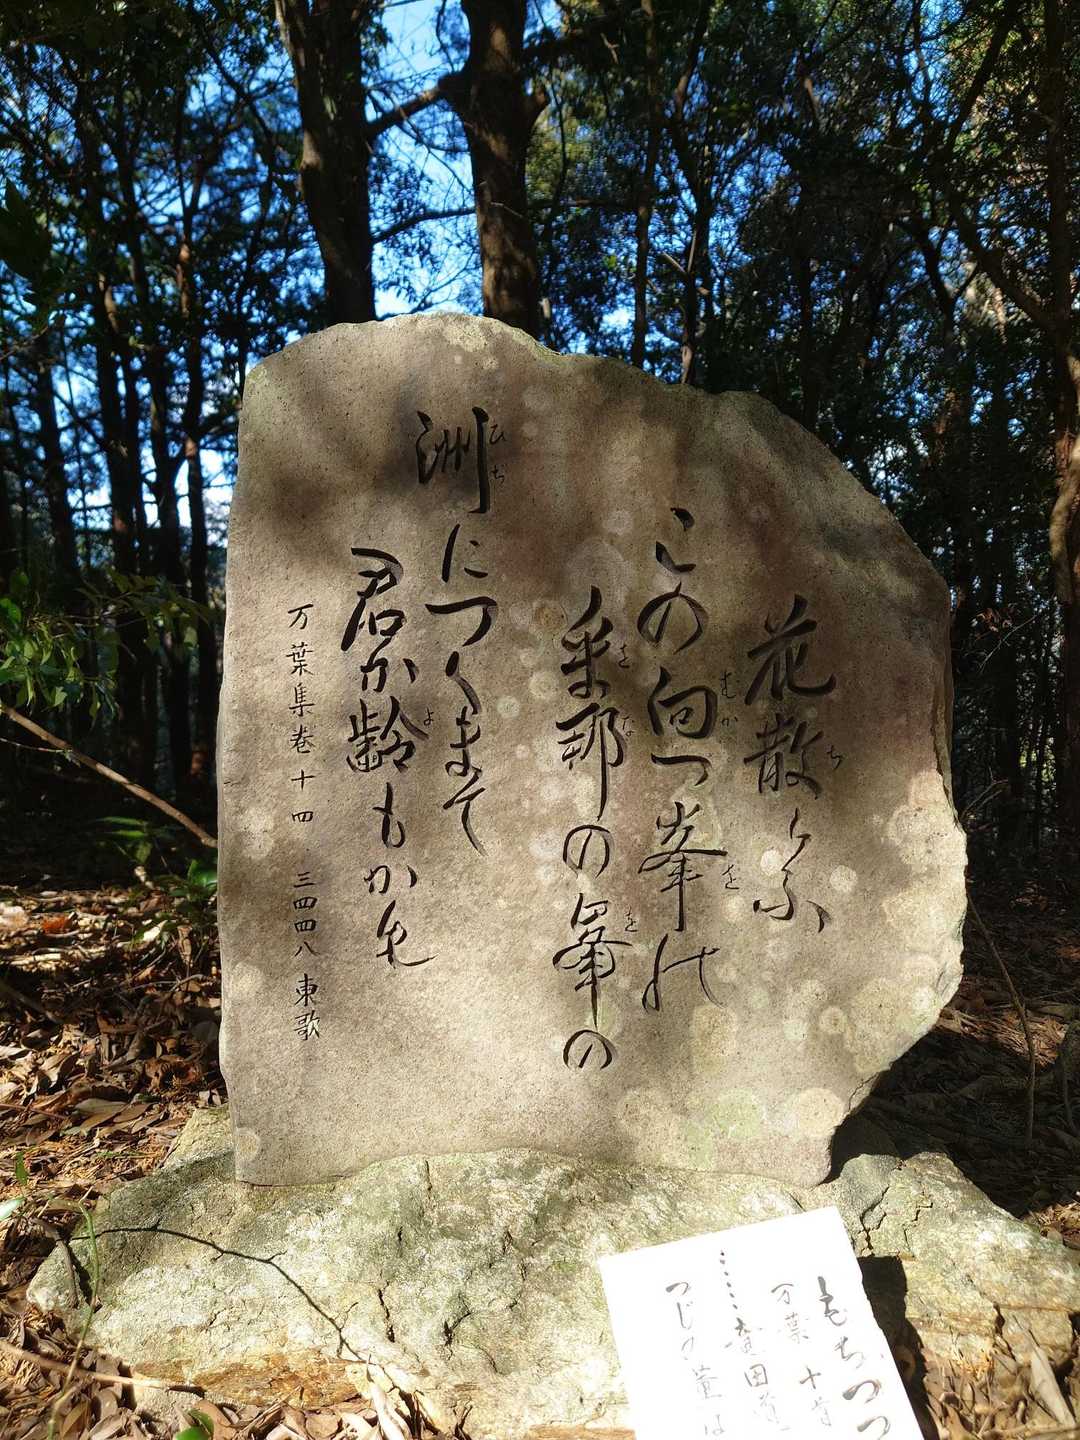 花散らふ
ち
この向つ峯の
むか
を
乎那の峯の
をな
を
洲につくまて
ひぢ
君か齢もかも
よ
万葉集巻十四 三四四八 東歌
もちつつ
万葉
つじの